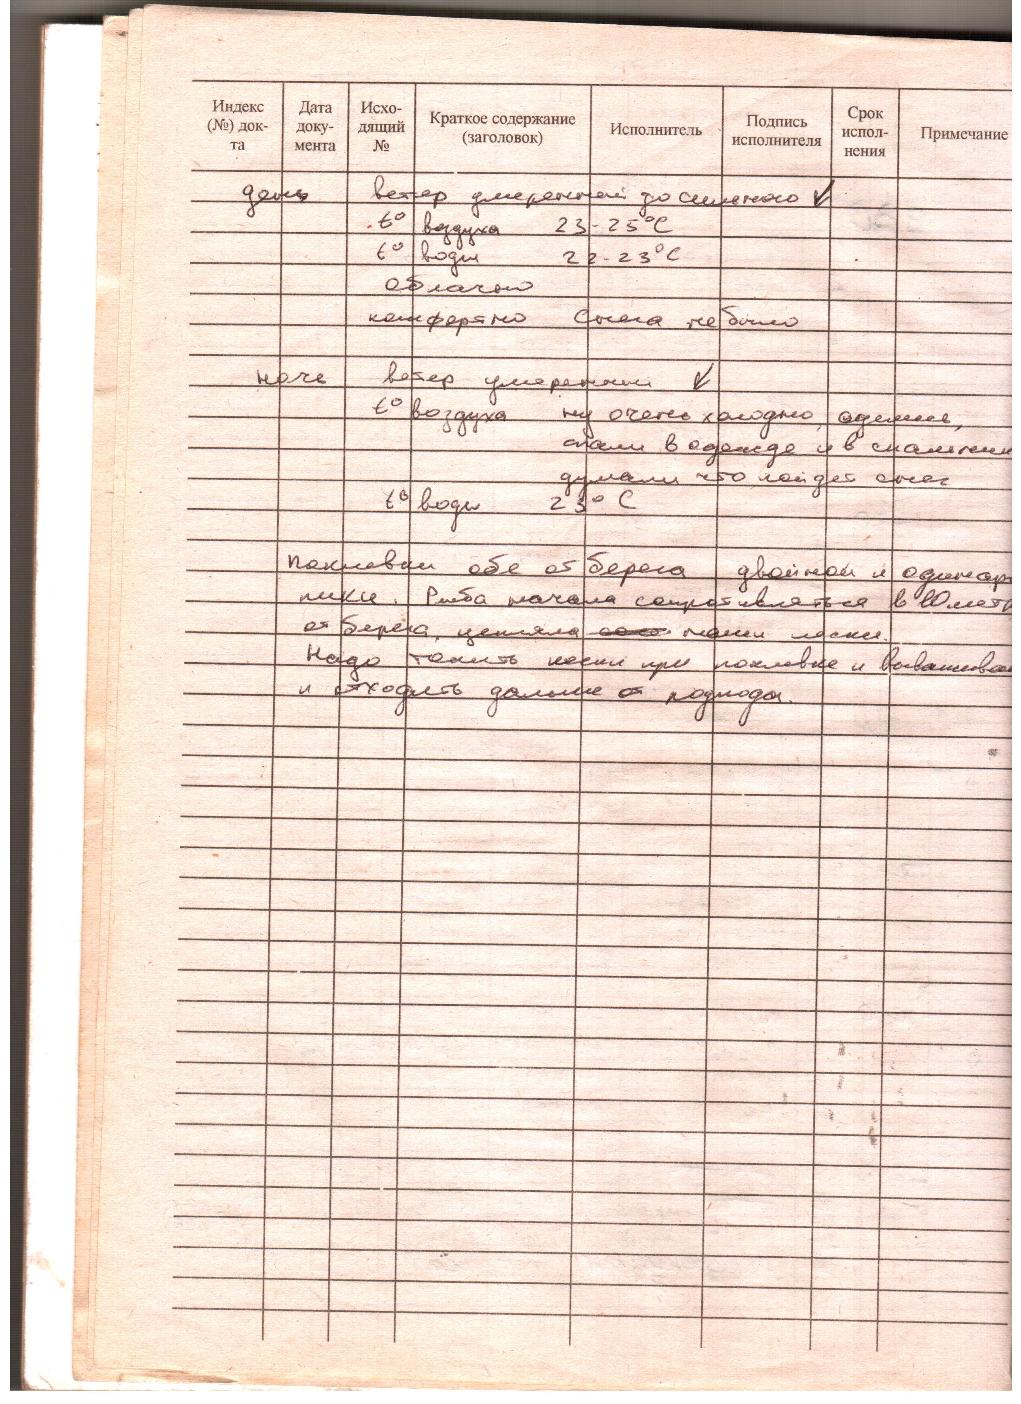 Индекс (№) док-та Дата доку-мента Исхо-дящий № Краткое содержание (заголовок) Исполнитель Подпись исполнителя Срок испол-нения Примечание
день ветер умеренный до сильного ✓
t° воздуха 23-25°C
t° воды 22-23°C
облачно
комфортно Снега не было
ночь ветер умеренный ✓
t° воздуха ну очень холодно, одеяние,
спали в одежде и в
думали что пойдет снег
t° воды 23°C
Поклевки обе от берега двойной и одинар
пики. Рыба начала сопротивляться в 10 метр
от берега, цепляла наши лески.
Надо топить лески при поклевке и вываживан
и отходить дальше от подмоды.